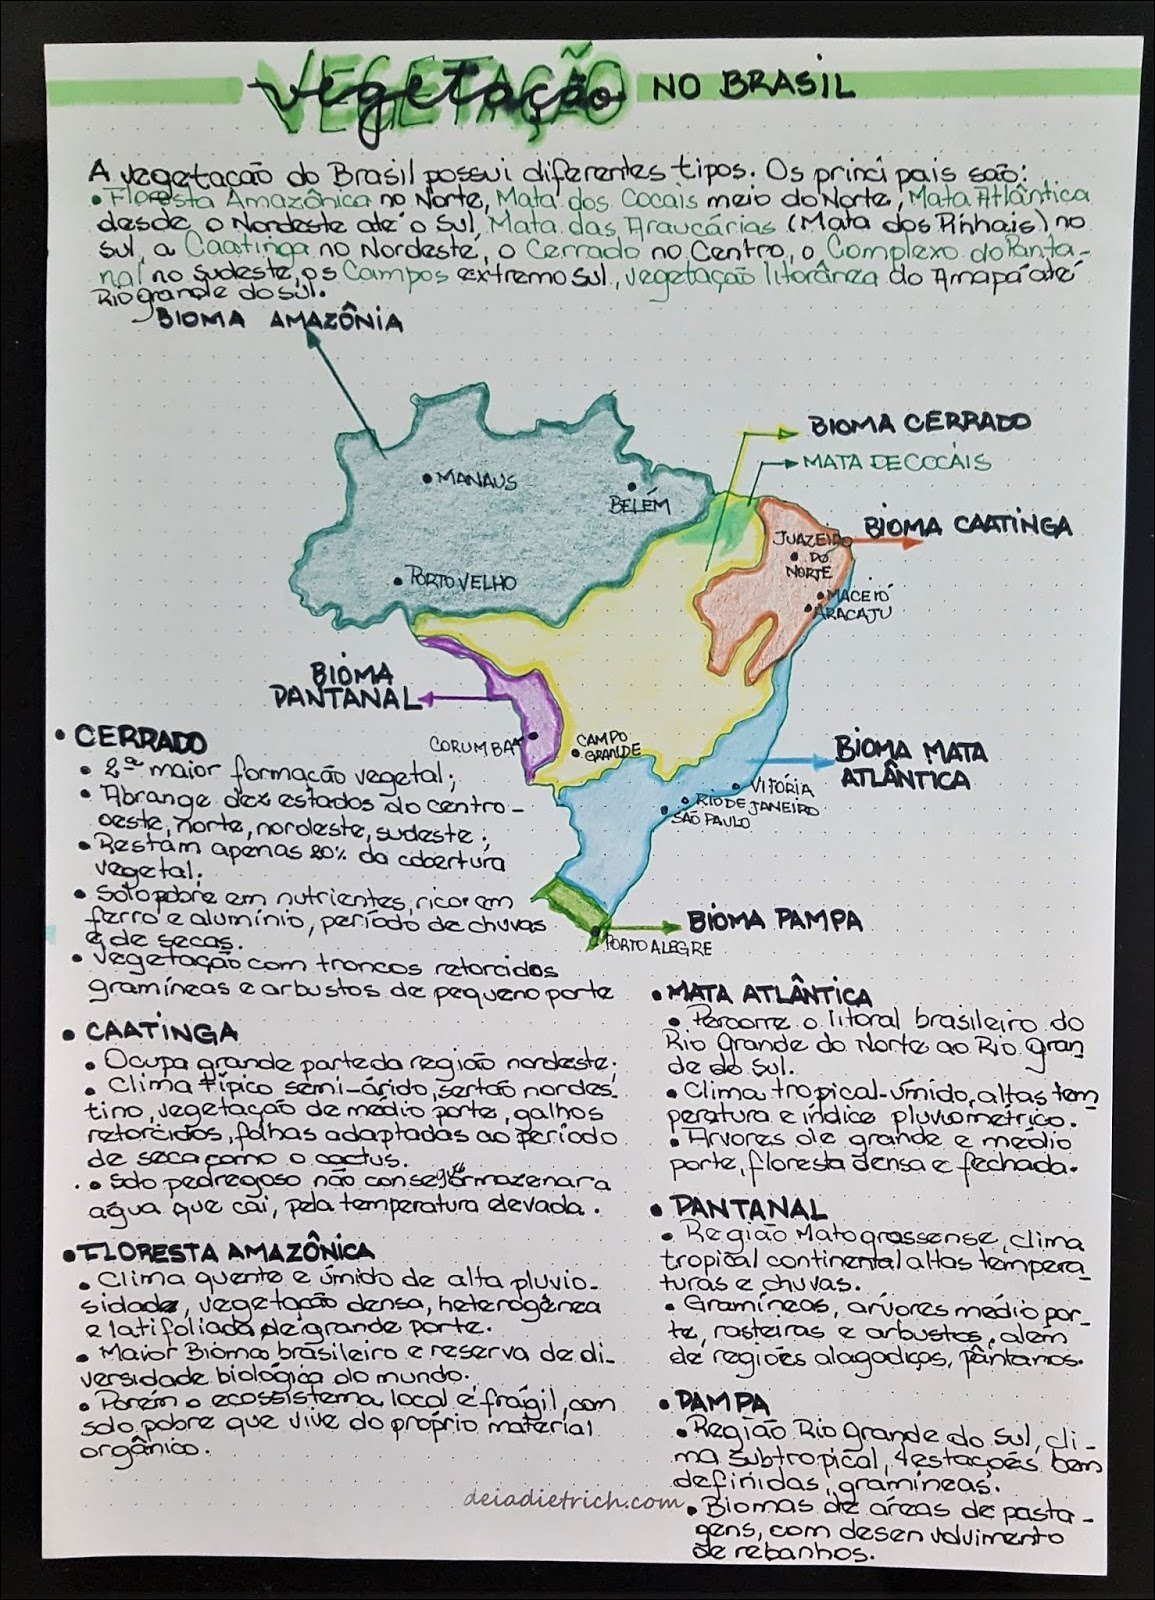 VEGETAÇÃO vegetação NO BRASIL
A vegetação do Brasil possui diferentes tipos. Os principais são:
• Floresta Amazônica no Norte, Mata dos Cocais meio do Norte, Mata Atlântica
desde o Nordeste até o Sul, Mata das Araucárias (Mata dos Pinhais) no
sul, a Caatinga no Nordeste, o Cerrado no Centro, o Complexo do Panta-
nal no sudeste, os Campos extremo sul, vegetação litorânea do Amapá até
Rio grande do sul.
BIOMA AMAZÔNIA
BIOMA CERRADO
MATA DE COCAIS
BIOMA CAATINGA
• MANAUS
BELÉM
JUAZEIRO
DO
NORTE
• PORTO VELHO
• MACEIÓ
• ARACAJU
BIOMA
PANTANAL
CORUMBÁ
CAMPO
GRANDE
BIOMA MATA
ATLÂNTICA
VITÓRIA
RIO DE JANEIRO
SÃO PAULO
BIOMA PAMPA
PORTO ALEGRE
• CERRADO
• 2ª maior formação vegetal;
• Abrange dez estados do centro-
oeste, norte, nordeste, sudeste;
• Restam apenas 20% da cobertura
vegetal;
• Solo pobre em nutrientes, rico em
ferro e alumínio, período de chuvas
e de secas.
• Vegetação com troncos retorcidos
gramíneas e arbustos de pequeno porte
• CAATINGA
• Ocupa grande parte da região nordeste;
• Clima típico semi-árido, sertão nordes
tino, vegetação de médio porte, galhos
retorcidos, folhas adaptadas ao período
de seca como o cactus.
• Solo pedregoso não consegue armazenar a
água que cai, pela temperatura elevada.
• FLORESTA AMAZÔNICA
• Clima quente e úmido de alta pluvio-
sidade, vegetação densa, heterogênea
e latifoliada de grande porte.
• Maior Bioma brasileiro e reserva de di-
versidade biológica do mundo.
• Porém o ecossistema local é frágil, com
solo pobre que vive do próprio material
orgânico.
• MATA ATLÂNTICA
• Percorre o litoral brasileiro do
Rio Grande do Norte ao Rio Gran
de do Sul.
• Clima tropical-úmido, altas tem
peratura e índice pluviométrico.
• Árvores de grande e médio
porte, floresta densa e fechada.
• PANTANAL
• Região Mato grossense, clima
tropical continental altas tempera-
turas e chuvas.
• Gramíneas, árvores médio por-
te, rasteiras e arbustos, além
de regiões alagadiças, pântanos.
• PAMPA
• Região Rio Grande do Sul, cli-
ma subtropical, 4 estações bem
definidas, gramíneas.
• Biomas de áreas de pasta-
gens, com desenvolvimento
de rebanhos.
deiadietrich.com